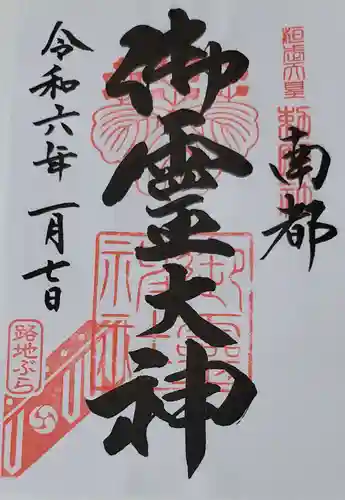 桓武天皇
勅願所
南都
御霊大神
令和六年 一月七日
御霊神社
路地ぶら